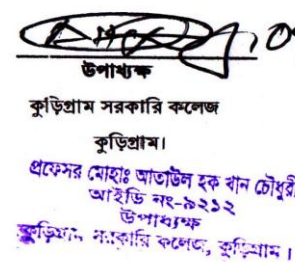 উপাধ্যক্ষ
কুড়িগ্রাম সরকারি কলেজ
কুড়িগ্রাম।
প্রফেসর মোহাঃ আতাউল হক খান চৌধুরী
আইডি নং-৯২১২
উপাধ্যক্ষ
কুড়িগ্রাম সরকারি কলেজ, কুড়িগ্রাম।